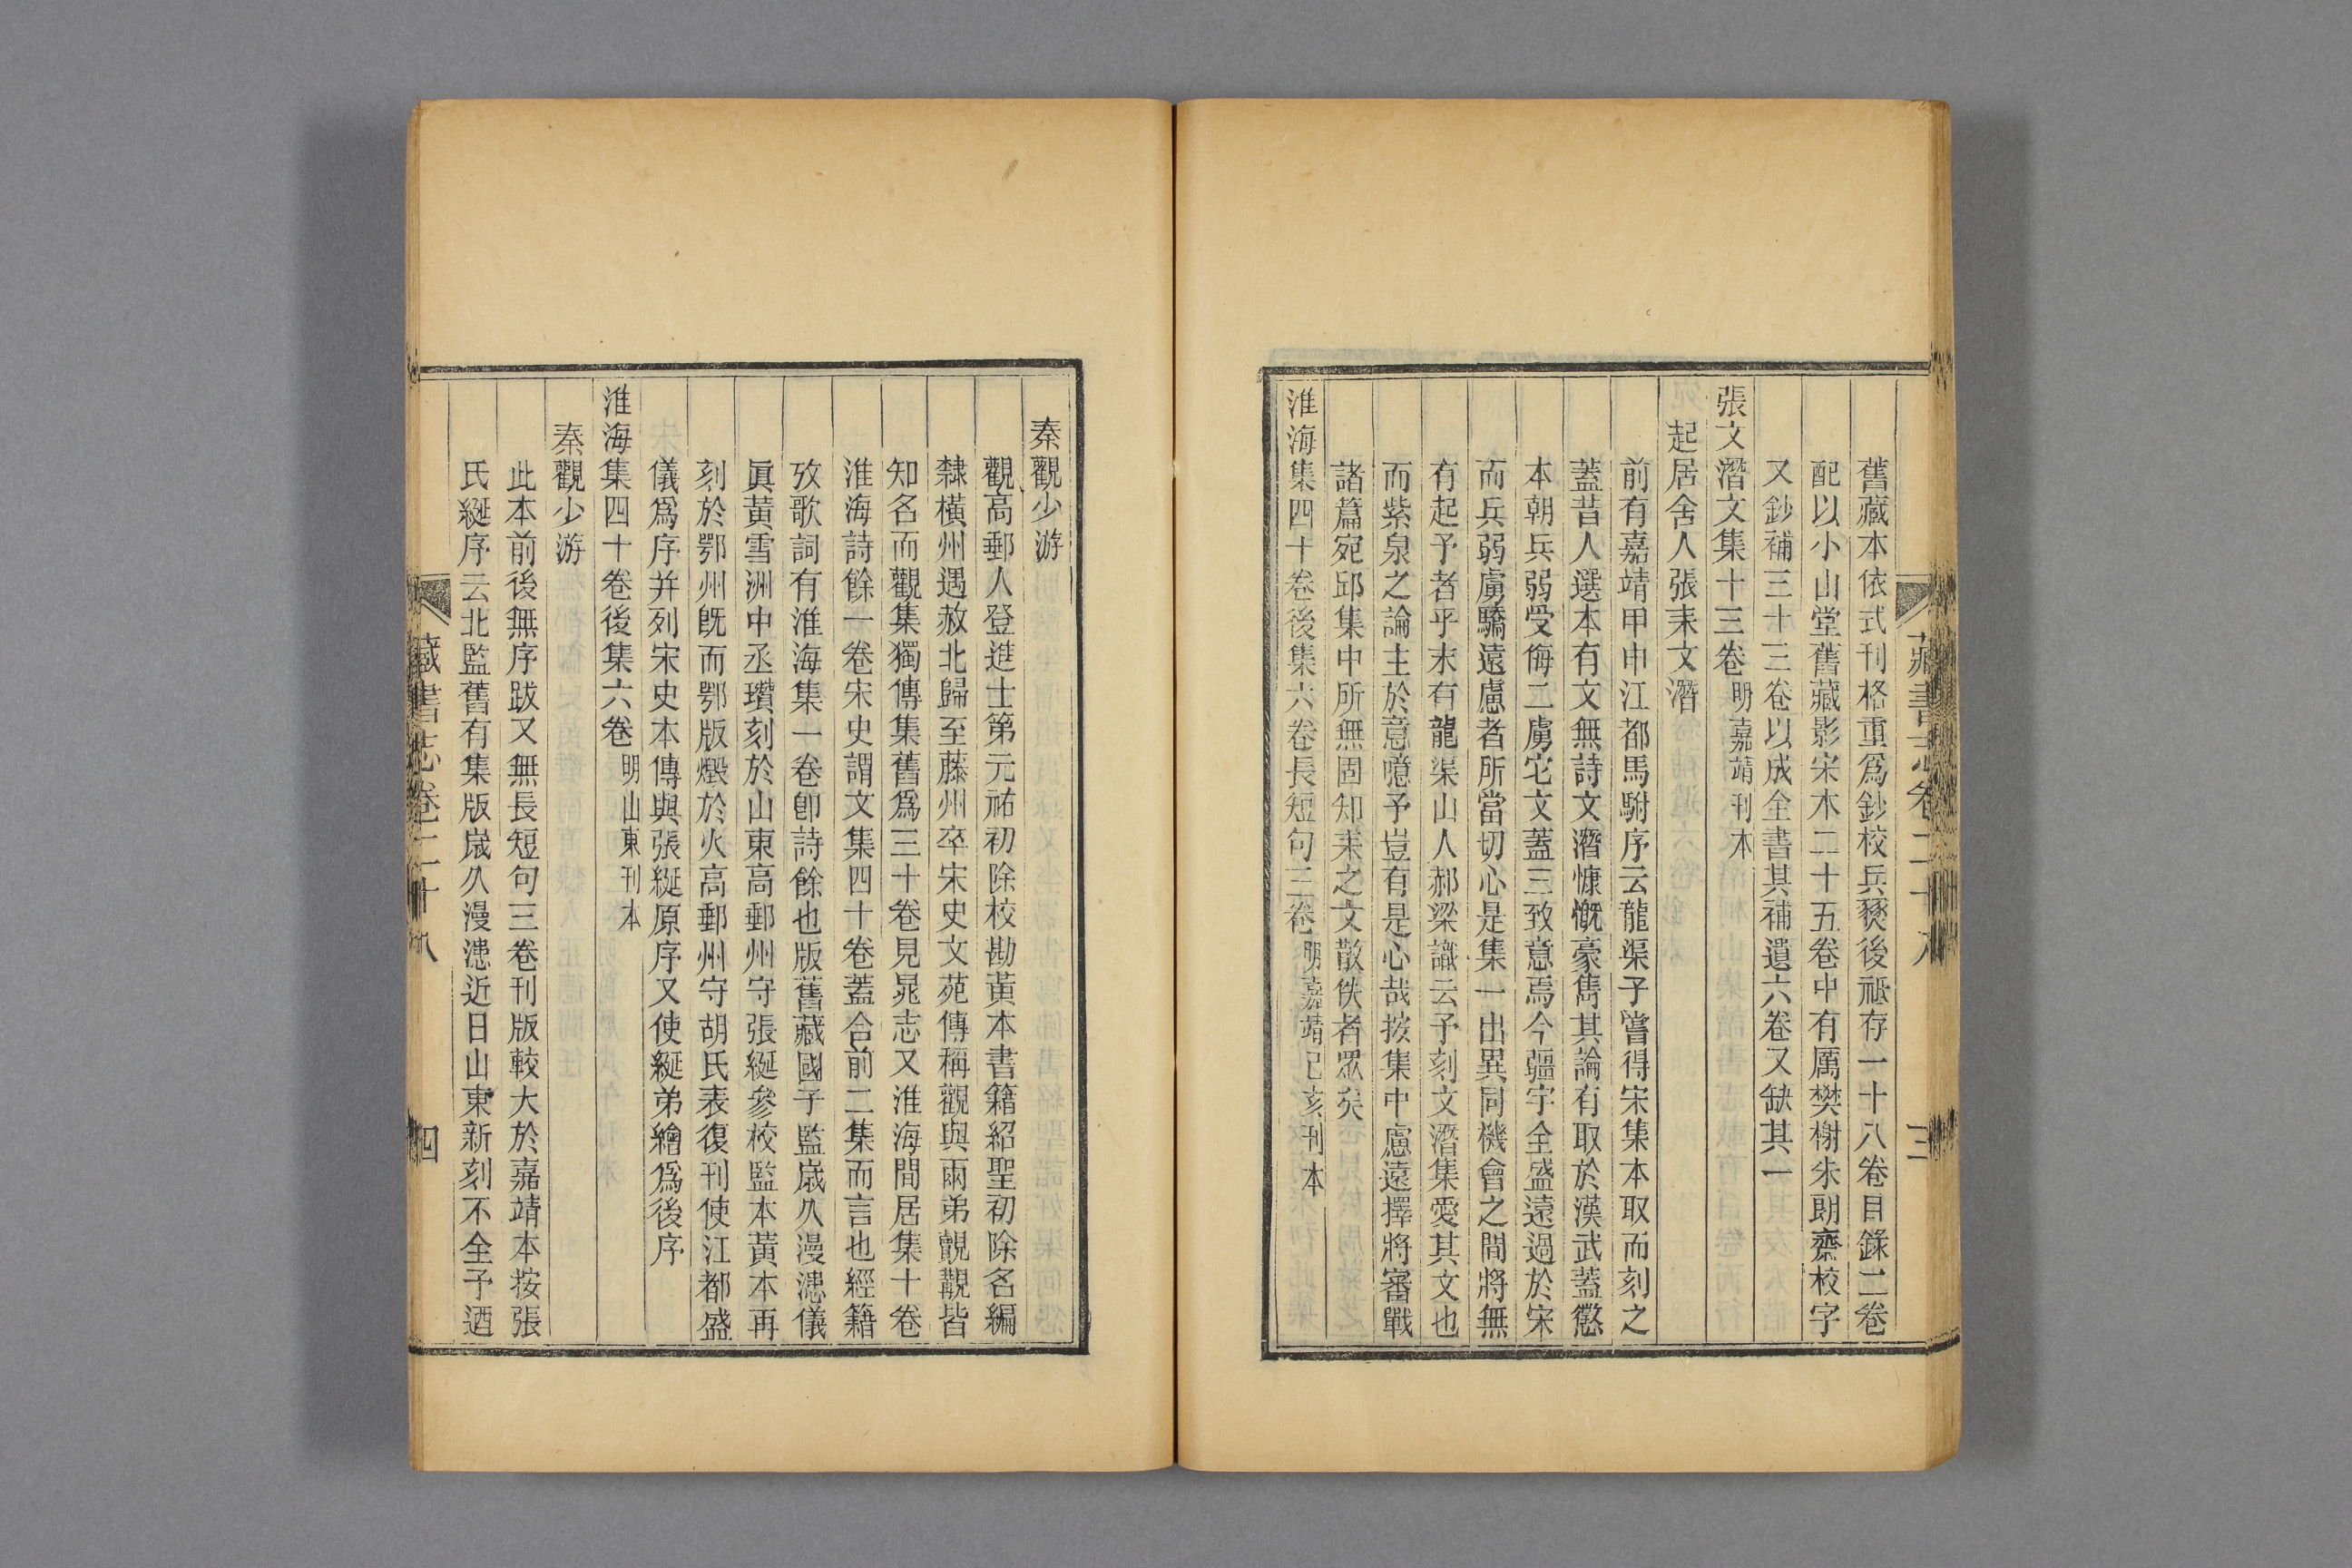 藏書志卷二十八
三
舊藏本依式刊格重爲鈔校兵燹後祗存一十八卷目錄二卷
配以小山堂舊藏影宋本二十五卷中有厲樊榭朱朗齋校字
又鈔補三十三卷以成全書其補遺六卷又缺其一
張文潛文集十三卷 明嘉靖刊本
起居舍人張耒文潛
前有嘉靖甲申江都馬駙序云龍渠子嘗得宋集本取而刻之
蓋昔人選本有文無詩文潛慷慨豪雋其論有取於漢武蓋懲
本朝兵弱受侮二虜它文蓋三致意焉今疆宇全盛遠過於宋
而兵弱虜驕遠慮者所當切心是集一出異同機會之間將無
有起予者乎末有龍渠山人郝梁識云予刻文潛集愛其文也
而紫泉之論主於意噫予豈有是心哉按集中慮遠擇將審戰
諸篇宛邱集中所無固知耒之文散佚者眾矣
淮海集四十卷後集六卷長短句三卷 明嘉靖己亥刊本
秦觀少游
觀高郵人登進士第元祐初除校勘黃本書籍紹聖初除名編
隸橫州遇赦北歸至藤州卒宋史文苑傳稱觀與兩弟覿覯皆
知名而觀集獨傳集舊爲三十卷見晁志又淮海閒居集十卷
淮海詩餘一卷宋史謂文集四十卷蓋合前二集而言也經籍
攷歌詞有淮海集一卷卽詩餘也版舊藏國子監歲久漫漶儀
眞黃雪洲中丞瓚刻於山東高郵州守張綖參校監本黃本再
刻於鄂州旣而鄂版燬於火高郵州守胡氏表復刊使江都盛
儀爲序并列宋史本傳與張綖原序又使綖弟繪爲後序
淮海集四十卷後集六卷 明山東刊本
秦觀少游
此本前後無序跋又無長短句三卷刊版較大於嘉靖本按張
氏綖序云北監舊有集版歲久漫漶近日山東新刻不全予迺
藏書志卷二十八
四